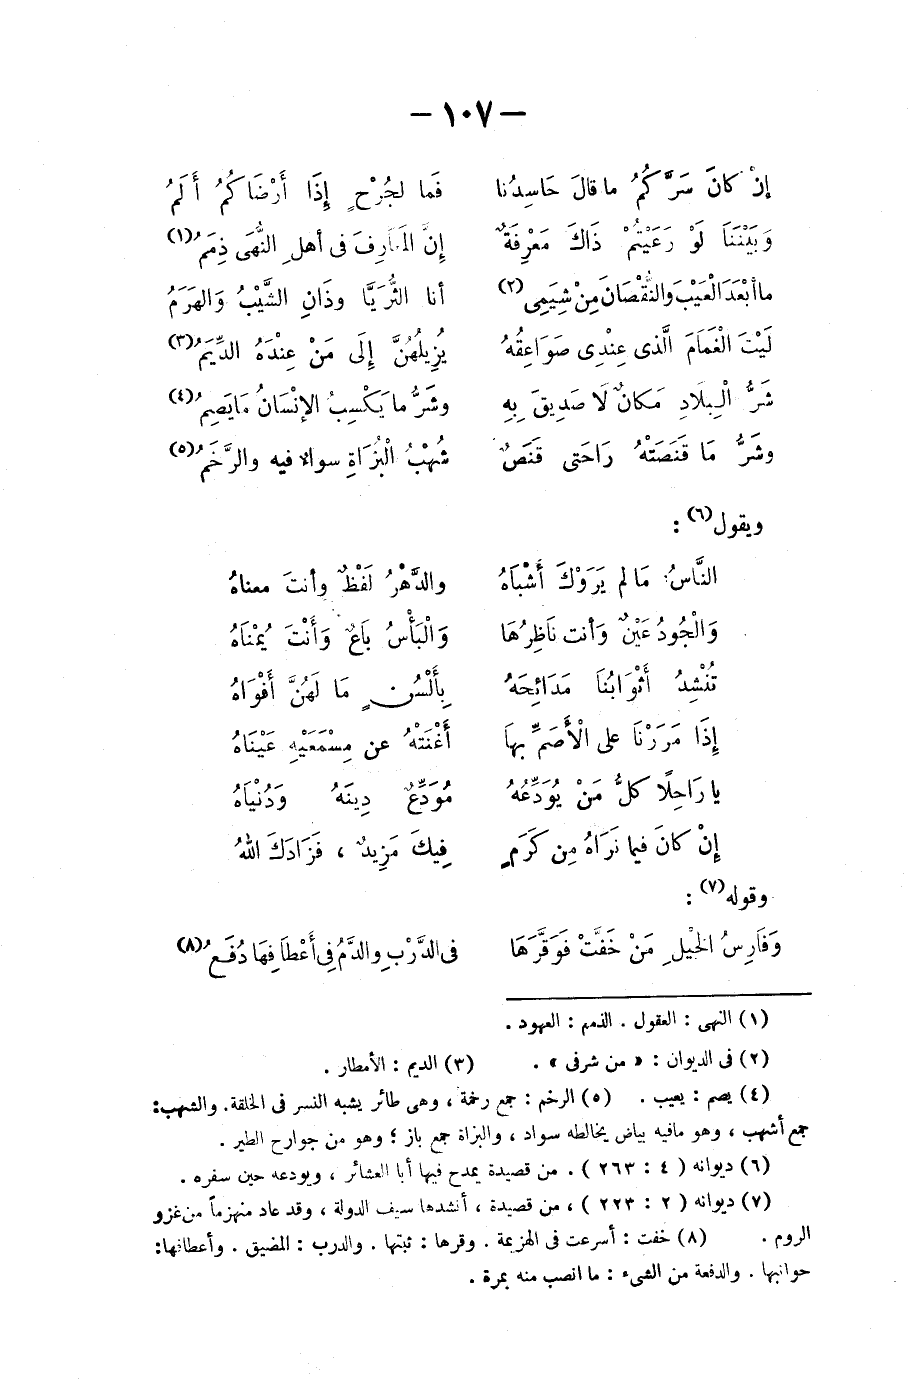 — ١٠٧ —
إنْ كانَ سَرَّكُمُ ما قالَ حَاسِدُنا فَما لجُرْحٍ إِذَا أَرْضَاكُمُ أَلَمُ
وَبَيْنَنَا لَوْ رَعَيْتُمْ ذَاكَ مَعْرِفَةٌ إِنَّ المَعَارِفَ فى أهلِ النُّهَى ذِمَمُ(١)
ما أبْعَدَ الْعَيْبَ والنُّقْصَانَ مِنْ شِيَمِى(٢) أنا الثُّرَيَّا وذَانِ الشَّيْبُ وَالهَرَمُ
لَيْتَ الْغَمَامَ الَّذى عِنْدِى صَوَاعِقُهُ يُزِيلُهُنَّ إِلَى مَنْ عِنْدَهُ الدِّيَمُ(٣)
شَرُّ الْبِلَادِ مَكانٌ لَا صَدِيقَ بِهِ وشَرُّ ما يَكْسِبُ الإنْسَانُ مَا يَصِمُ(٤)
وشَرُّ مَا قَنَصَتْهُ رَاحَتى قَنَصٌ شُهْبُ الْبُزَاةِ سوالا فيه والرَّخَمُ(٥)
ويقول(٦) :
النَّاسُ مَا لم يَرَوْكَ أَشْبَاهُ والدَّهْرُ لَفْظٌ وأنتَ معناهُ
وَالْجُودُ عَيْنٌ وَأنت نَاظِرُهَا وَالْبَأْسُ بَاعٌ وَأَنْتَ يُمْنَاهُ
تُنْشِدُ أَثْوَابُنَا مَدَائِحَهُ بِأَلْسُنٍ مَا لَهُنَّ أَفْوَاهُ
إِذَا مَرَرْنَا على الْأَصَمِّ بهاَ أَغْنَتْهُ عن مِسْمَعَيْهِ عَيْنَاهُ
يا رَاحِلًا كلُّ مَنْ يُوَدِّعُهُ مُوَدِّعٌ دِينَهُ وَدُنْيَاهُ
إِنْ كانَ فيما نَرَاهُ مِن كَرَمٍ فِيكَ مَزِيدٌ ، فَزَادَكَ اللهُ
وقوله(٧) :
وَفَارِسُ الخيْلِ مَنْ خَفَّتْ فَوَقَّرَهَا فى الدَّرْبِ والدَّمُ فى أَعْطَافِهَا دُفَعُ(٨)
(١) النهى : العقول . الذمم : العهود .
(٢) فى الديوان : « من شرفى » . (٣) الديم : الأمطار .
(٤) يصم : يعيب . (٥) الرخم : جمع رخمة ، وهى طائر يشبه النسر فى الخلقة . والشهب :
جمع أشهب ، وهو مافيه بياض يخالطه سواد ، والبزاة جمع باز ؛ وهو من جوارح الطير .
(٦) ديوانه ( ٤ : ٢٦٣ ) . من قصيدة يمدح فيها أبا العشائر ، ويودعه حين سفره .
(٧) ديوانه ( ٢ : ٢٢٣ ) ، من قصيدة ، أنشدها سيف الدولة ، وقد عاد منهزماً من غزو
الروم . (٨) خفت : أسرعت فى الهزيمة . وقرها : ثبتها . والدرب : المضيق . وأعطافها :
جوانبها . والدفعة من الشىء : ما انصب منه بمرة .